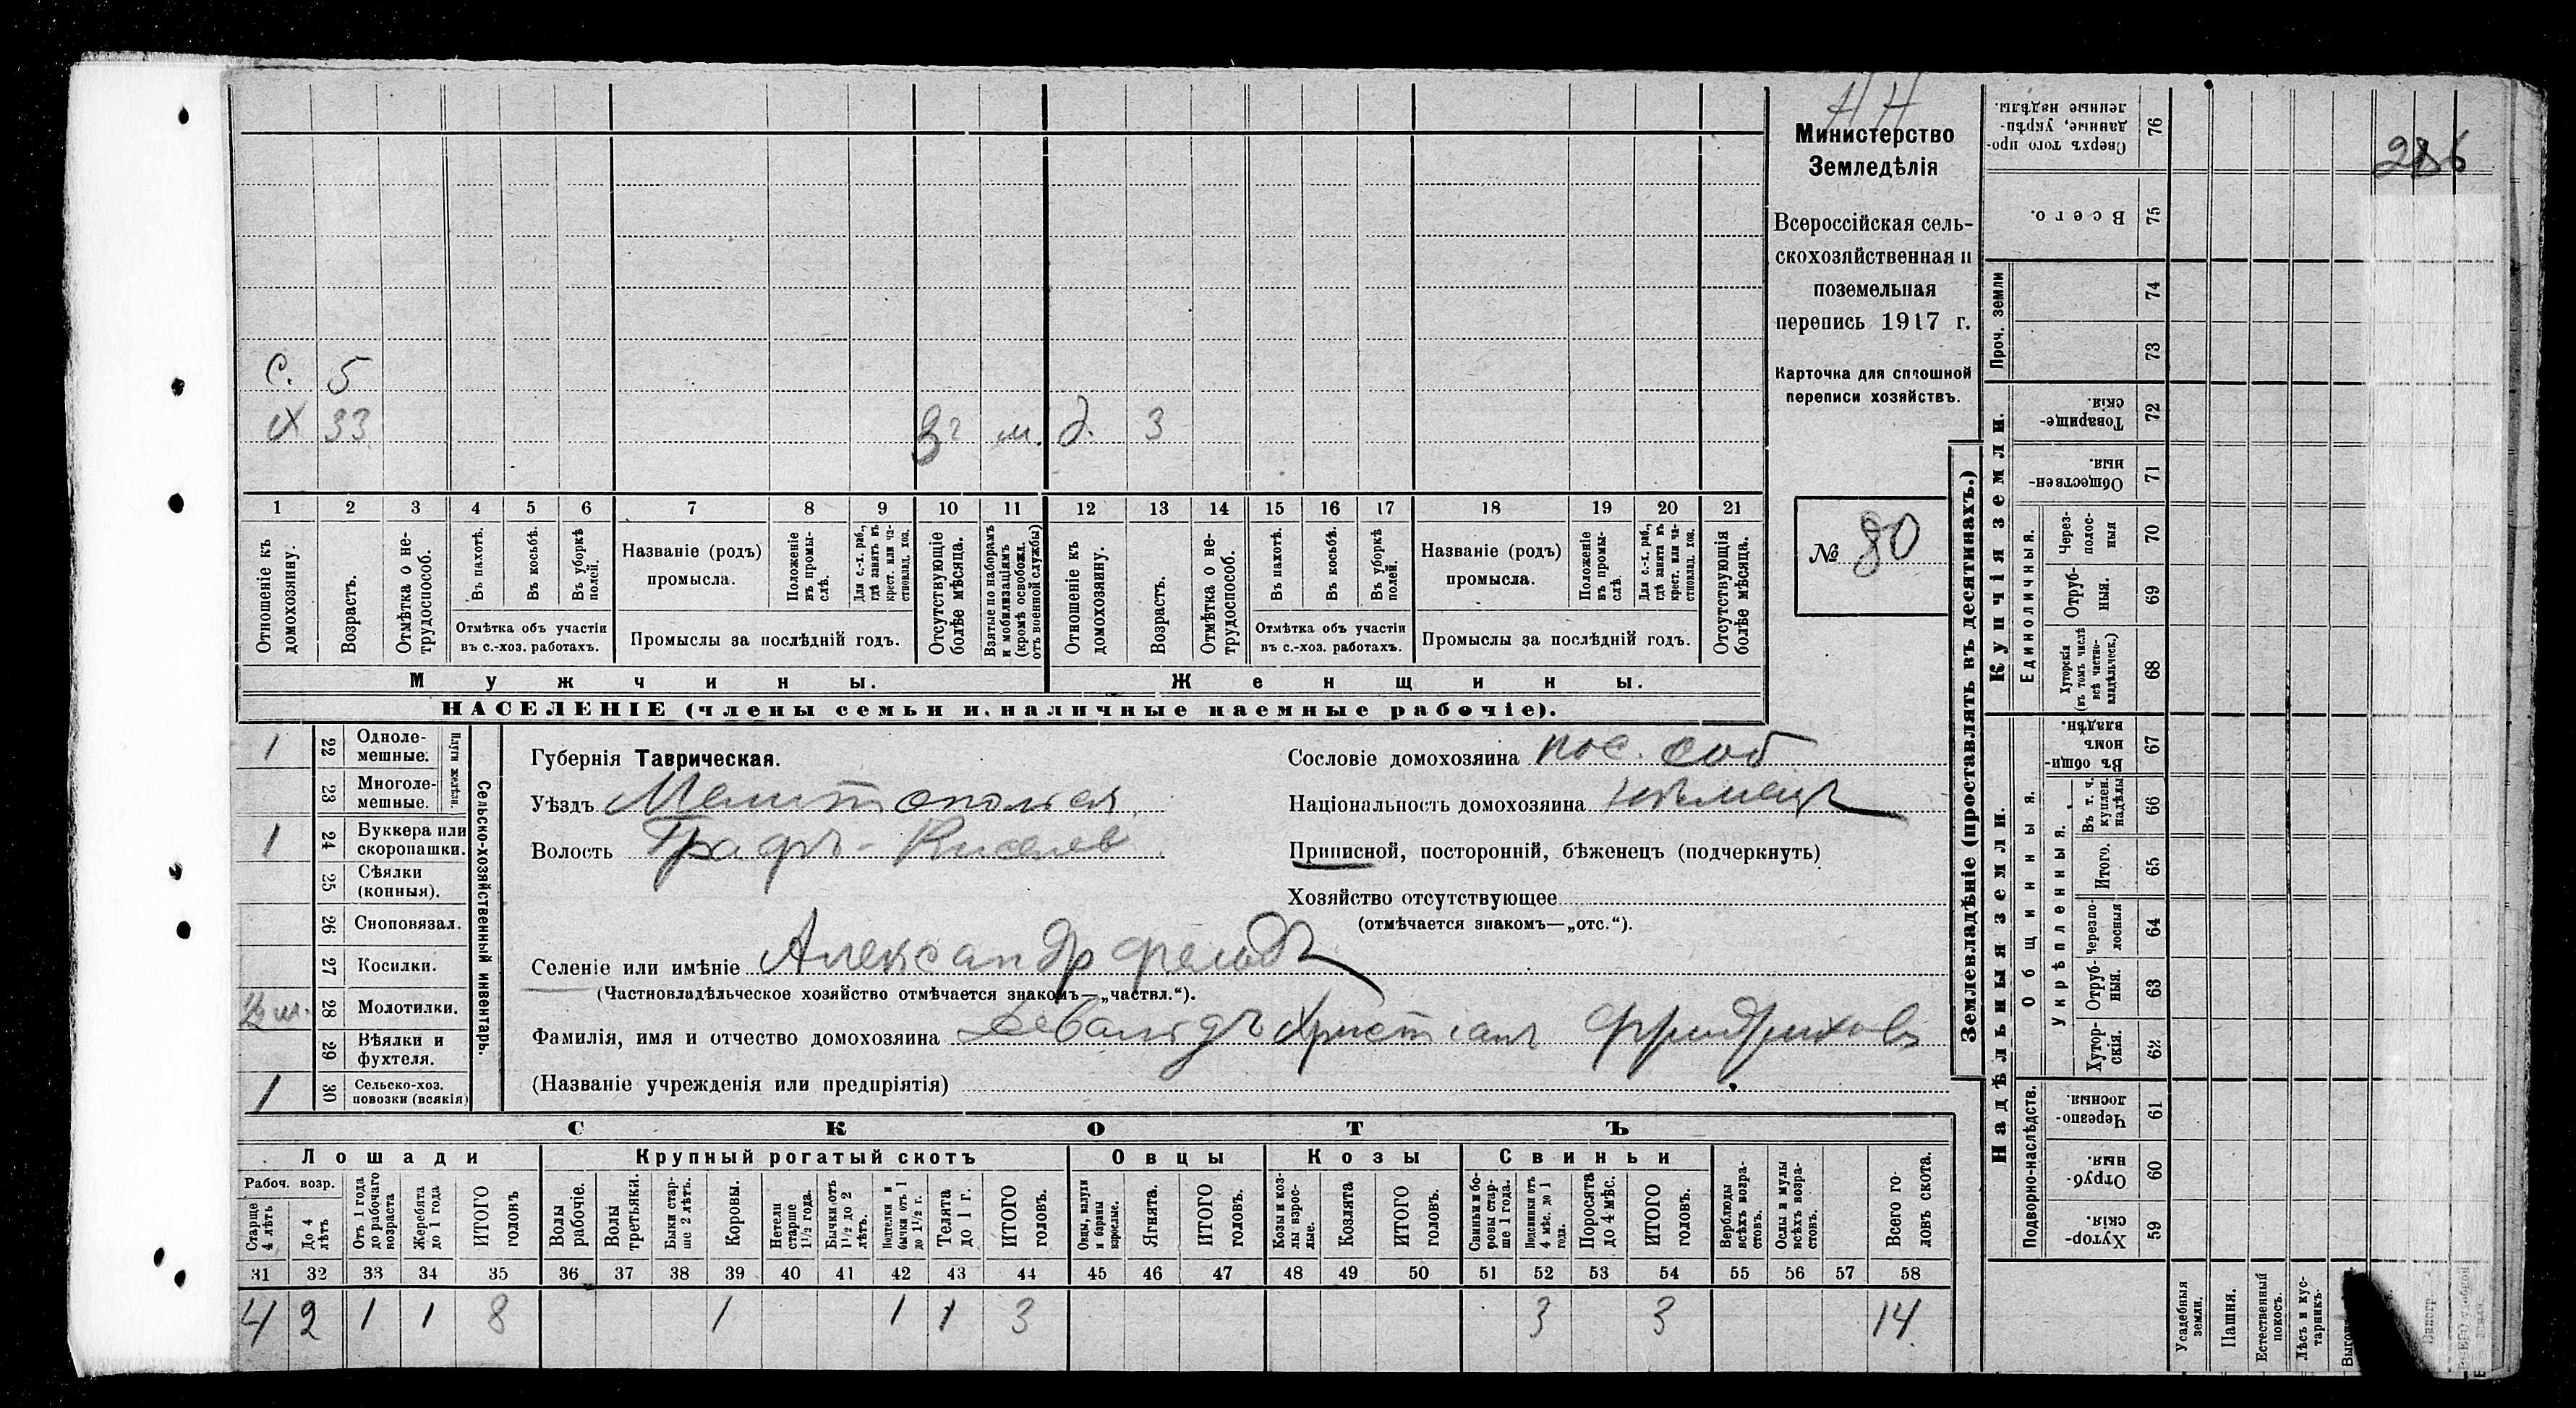 НН
Министерство
Земледѣлія
Всероссійская сель-
скохозяйственная и
поземельная
перепись 1917 г.
Карточка для сплошной
переписи хозяйствъ.
№ 80
286
С. 5
Х 33 м. д. 3
1 2 3 4 5 6 7 8 9 10 11 12 13 14 15 16 17 18 19 20 21
Отношеніе къ домохозяину.
Возрастъ.
Отмѣтка о не-трудоспособ.
Въ пахотѣ.
Въ косьбѣ.
Въ уборкѣ полей.
Отмѣтка объ участіи
въ с.-хоз. работахъ.
Названіе (родъ)
промысла.
Положеніе въ промы-слѣ.
Для с.-х. раб., гдѣ занятъ въ крест. или ча-стновлад. хоз.
Промыслы за послѣдній годъ.
Отсутствующіе болѣе мѣсяца.
Взятые по наборамъ и мобилизаціямъ (кромѣ освобожд. отъ военной службы)
Отношеніе къ домохозяину.
Возрастъ.
Отмѣтка о не-трудоспособ.
Въ пахотѣ.
Въ косьбѣ.
Въ уборкѣ полей.
Отмѣтка объ участіи
въ с.-хоз. работахъ.
Названіе (родъ)
промысла.
Положеніе въ промы-слѣ.
Для с.-х. раб., гдѣ занята въ крест. или ча-стновлад. хоз.
Промыслы за послѣдній годъ.
Отсутствующія болѣе мѣсяца.
Мужчины. Женщины.
НАСЕЛЕНІЕ (члены семьи и наличные наемные рабочіе).
1 22 Одноле-мешные.
23 Многоле-мешные.
Плуги желѣзн.
1 24 Буккера или скоропашки.
25 Сѣялки (конныя).
26 Сноповязал.
27 Косилки.
28 Молотилки.
29 Вѣялки и фухтеля.
1 30 Сельско-хоз. повозки (всякія)
Сельско-хозяйственный инвентарь.
Губернія Таврическая.
Уѣздъ Мелитопольскій
Волость Графъ-Киселев
Сословіе домохозяина пос. соб
Національность домохозяина нѣмецъ
Приписной, посторонній, бѣженецъ (подчеркнуть)
Хозяйство отсутствующее
(отмѣчается знакомъ—„отс.“).
Селеніе или имѣніе Александрфельдъ
(Частновладѣльческое хозяйство отмѣчается знакомъ—„частвл.“).
Фамилія, имя и отчество домохозяина Девальдъ Христіанъ Фридрихов
(Названіе учрежденія или предпріятія)
СКОТЪ
Лошади Крупный рогатый скотъ Овцы Козы Свиньи
Рабоч. возр.
Старше 4 лѣтъ
До 4 лѣтъ
Отъ 1 года до рабочаго возраста
Жеребята до 1 года
ИТОГО головъ
Волы рабочіе.
Волы третьяки.
Быки стар-ше 2 лѣтъ.
Коровы.
Нетели старше 1½ года.
Бычки отъ 1½ до 2 лѣтъ.
Подтелки и бычки отъ 1 до 1½ г.
Телята до 1 г.
ИТОГО головъ.
Овцы, валухи и бараны взрослые.
Ягнята.
ИТОГО головъ.
Козы и коз-лы взрос-лые.
Козлята
ИТОГО головъ.
Свиньи и бо-ровы стар-ше 1 года.
Подсвинки отъ 4 мѣс. до 1 года.
Поросята до 4 мѣс.
ИТОГО головъ.
Верблюды всѣхъ возра-стовъ.
Ослы и мулы всѣхъ возра-стовъ.
Всего го-ловъ скота.
31 32 33 34 35 36 37 38 39 40 41 42 43 44 45 46 47 48 49 50 51 52 53 54 55 56 57 58
4 2 1 1 8 1 1 1 3 3 3 14
Землевладѣніе (проставлять въ десятинахъ.)
Надѣльныя земли. Купчія земли. Проч. земли
Подворно-наслѣдств. Общинныя. Укрѣпленныя. Единоличныя.
Хутор-скія. 59
Отруб-ныя. 60
Черезпо-лосныя. 61
Хутор-скія. 62
Отруб-ныя. 63
Черезпо-лосныя 64
Итого. 65
Въ т. ч. куплен. надѣлы 66
Въ общи-номъ владѣн. 67
Хуторскія (въ томъ числѣ всѣ частно-владѣльческ.) 68
Отруб-ныя. 69
Через-полос-ныя 70
Обществен-ныя. 71
Товарище-скія. 72
73
74
Всего. 75
Сверхъ того про-данные, укрѣп-ленные надѣлы. 76
Усадебныя земли.
Пашня.
Естественный покосъ.
Лѣсъ и кус-тарникъ.